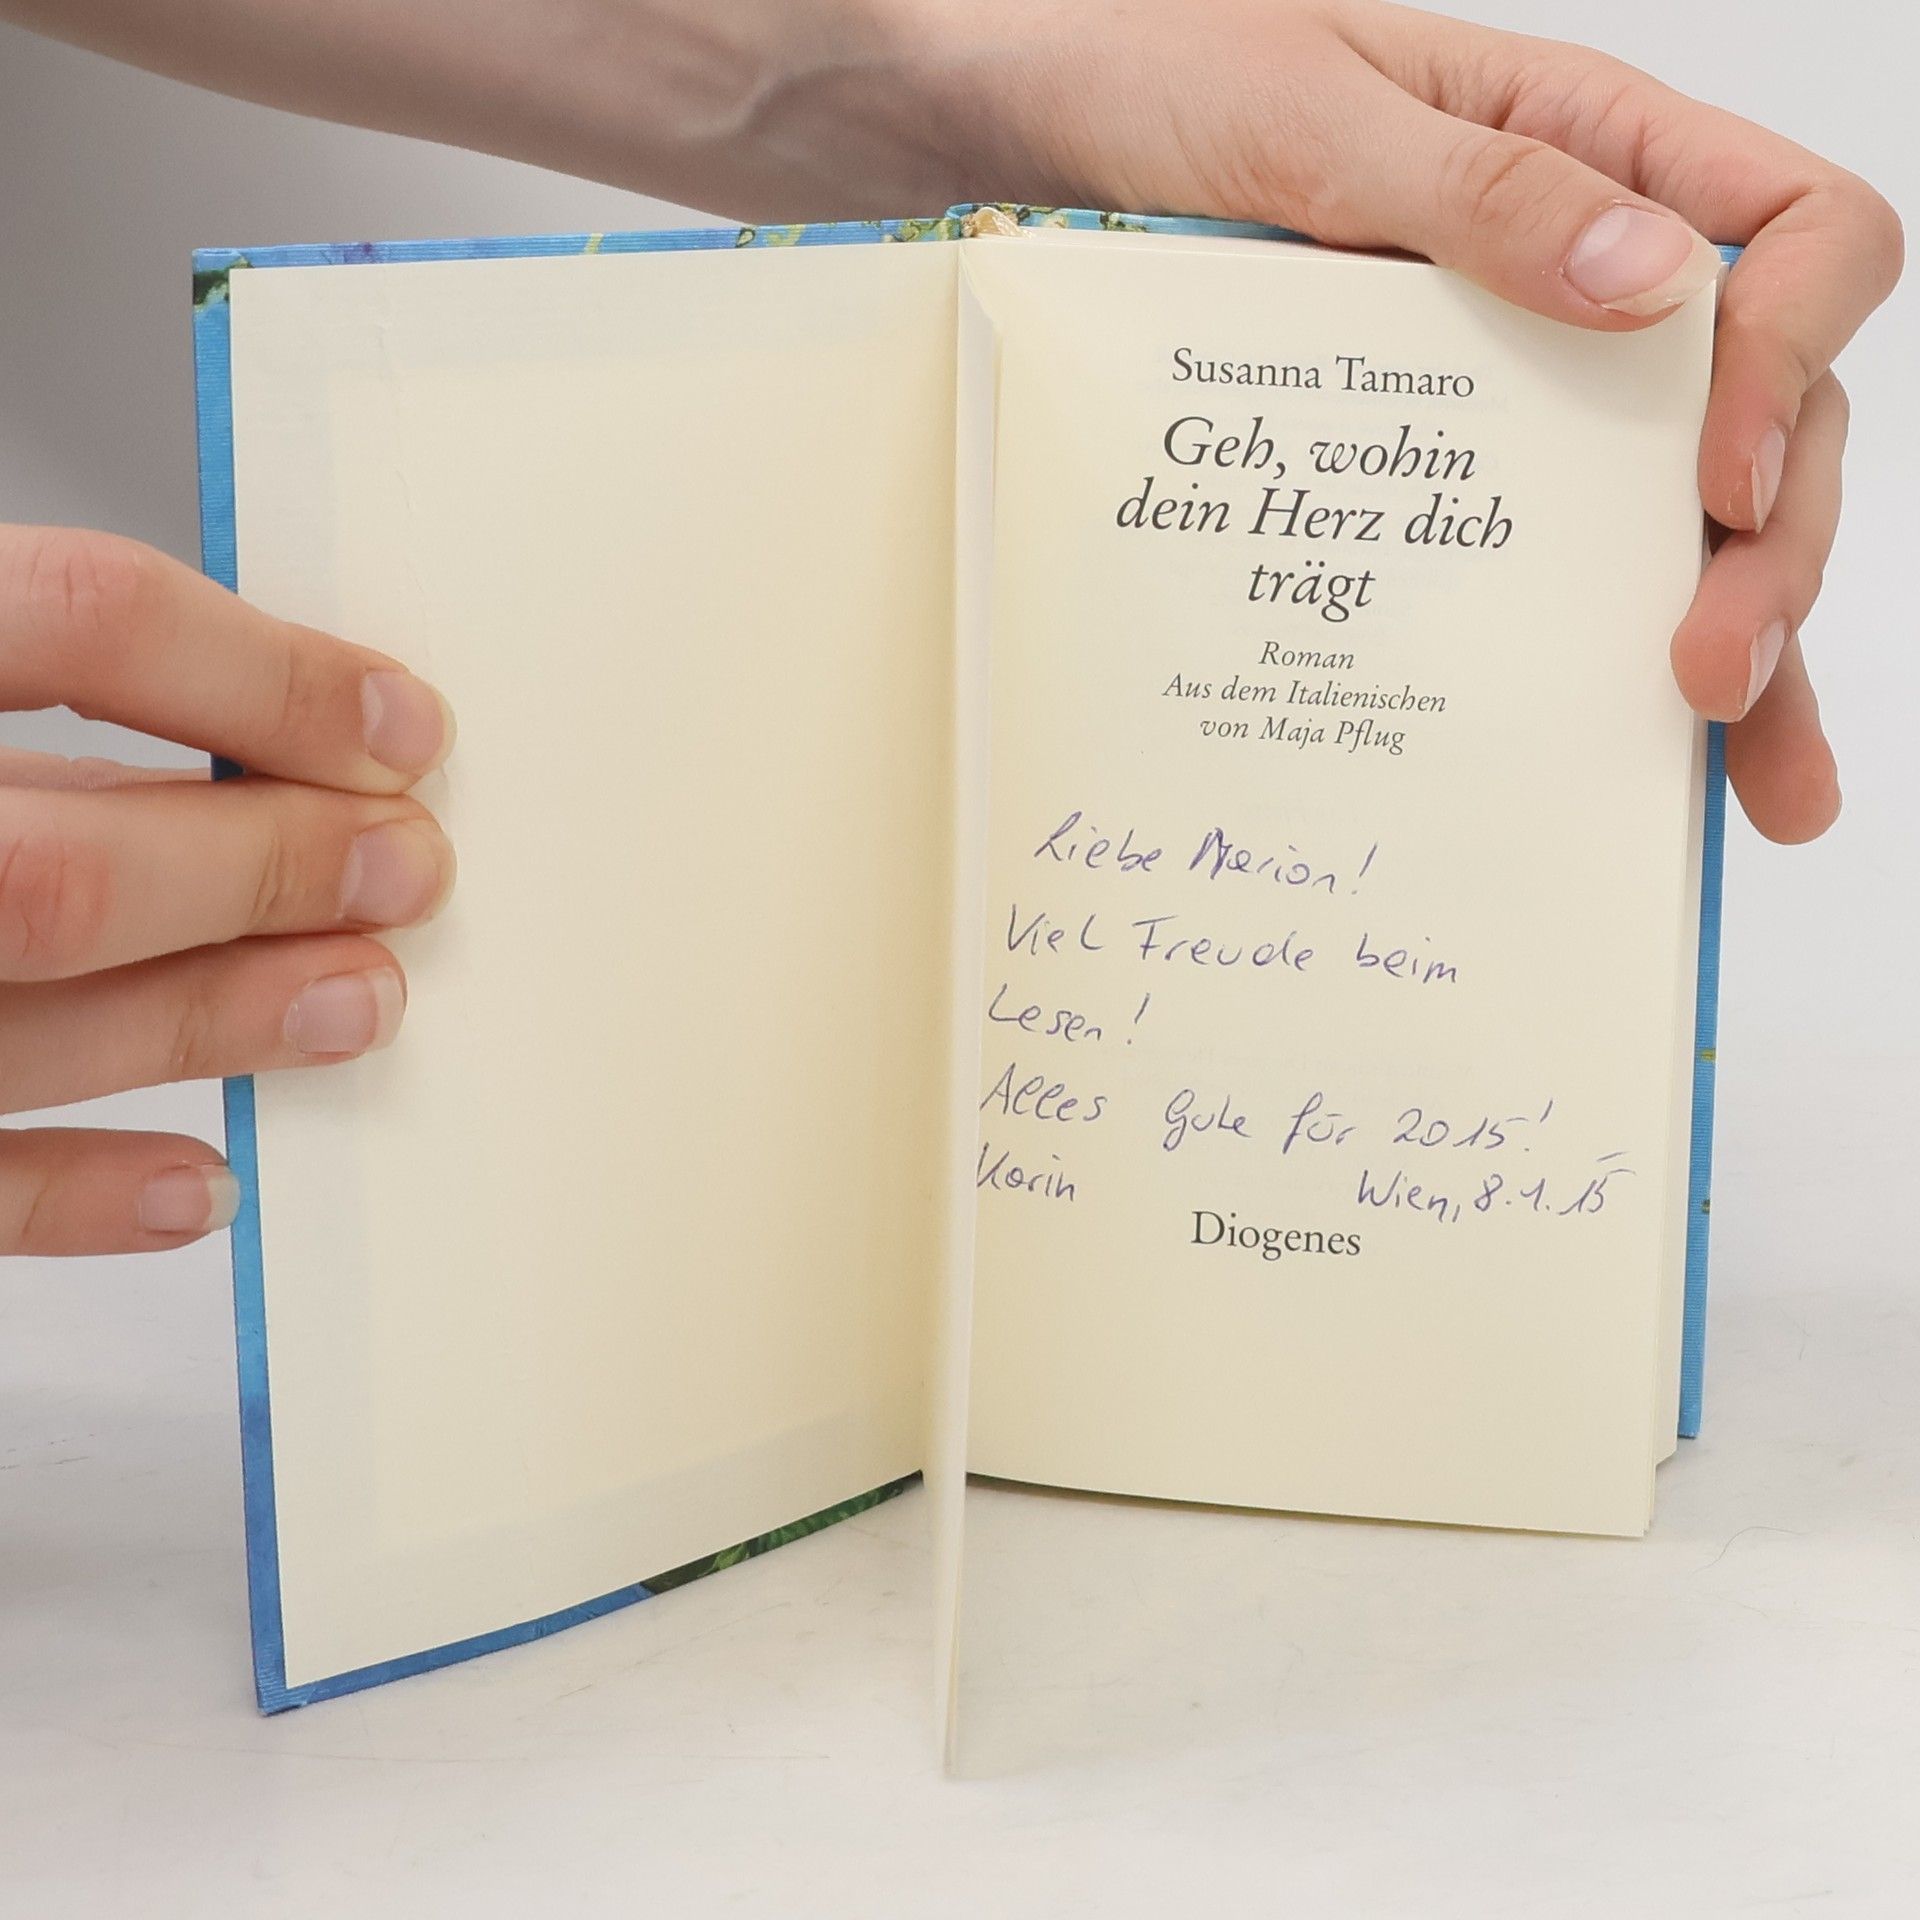 Susanna Tamaro
Geh, wohin
dein Herz dich
trägt
Roman
Aus dem Italienischen
von Maja Pflug
Liebe Marion!
Viel Freude beim
Lesen!
Alles Gute für 2015!
Karin Wien, 8.1.15
Diogenes